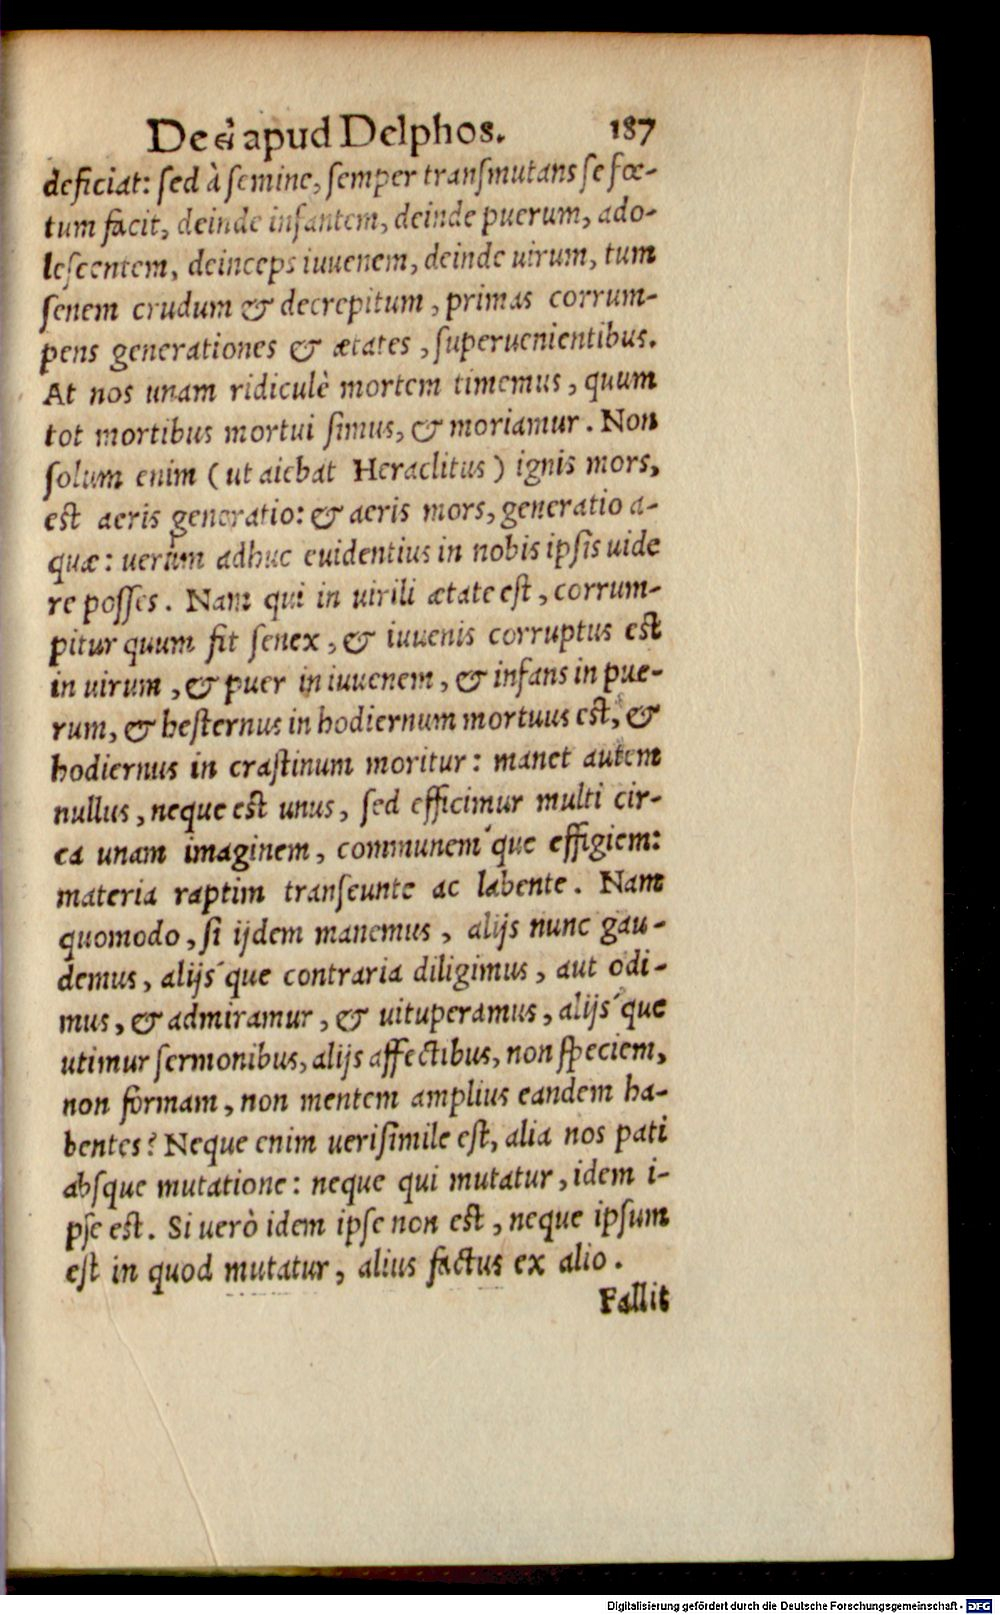 De εἰ apud Delphos. 187
deficiat: ſed à ſemine, ſemper tranſmutans ſe fœ-
tum facit, deinde infantem, deinde puerum, ado-
leſcentem, deinceps iuuenem, deinde uirum, tum
ſenem crudum & decrepitum, primas corrum-
pens generationes & ætates, ſuperuenientibus.
At nos unam ridiculè mortem timemus, quum
tot mortibus mortui ſimus, & moriamur. Non
ſolum enim (ut aiebat Heraclitus) ignis mors,
est aeris generatio: & aeris mors, generatio a-
quæ: uerùm adhuc euidentius in nobis ipſis uide
re poſſes. Nam qui in uirili ætate eſt, corrum-
pitur quum fit ſenex, & iuuenis corruptus est
in uirum, & puer in iuuenem, & infans in pue-
rum, & heſternus in hodiernum mortuus eſt, &
hodiernus in craſtinum moritur: manet autem
nullus, neque est unus, ſed efficimur multi cir-
ca unam imaginem, communem´que effigiem:
materia raptim tranſeunte ac labente. Nam
quomodo, ſi ijdem manemus, alijs nunc gau-
demus, alijs´que contraria diligimus, aut odi-
mus, & admiramur, & uituperamus, alijs´que
utimur ſermonibus, alijs affectibus, non ſpeciem,
non formam, non mentem amplius eandem ha-
bentes? Neque enim ueriſimile eſt, alia nos pati
abſque mutatione: neque qui mutatur, idem i-
pſe est. Si uerò idem ipſe non est, neque ipſum
eſt in quod mutatur, alius factus ex alio.
Fallit
Digitalisierung gefördert durch die Deutsche Forschungsgemeinschaft - DFG